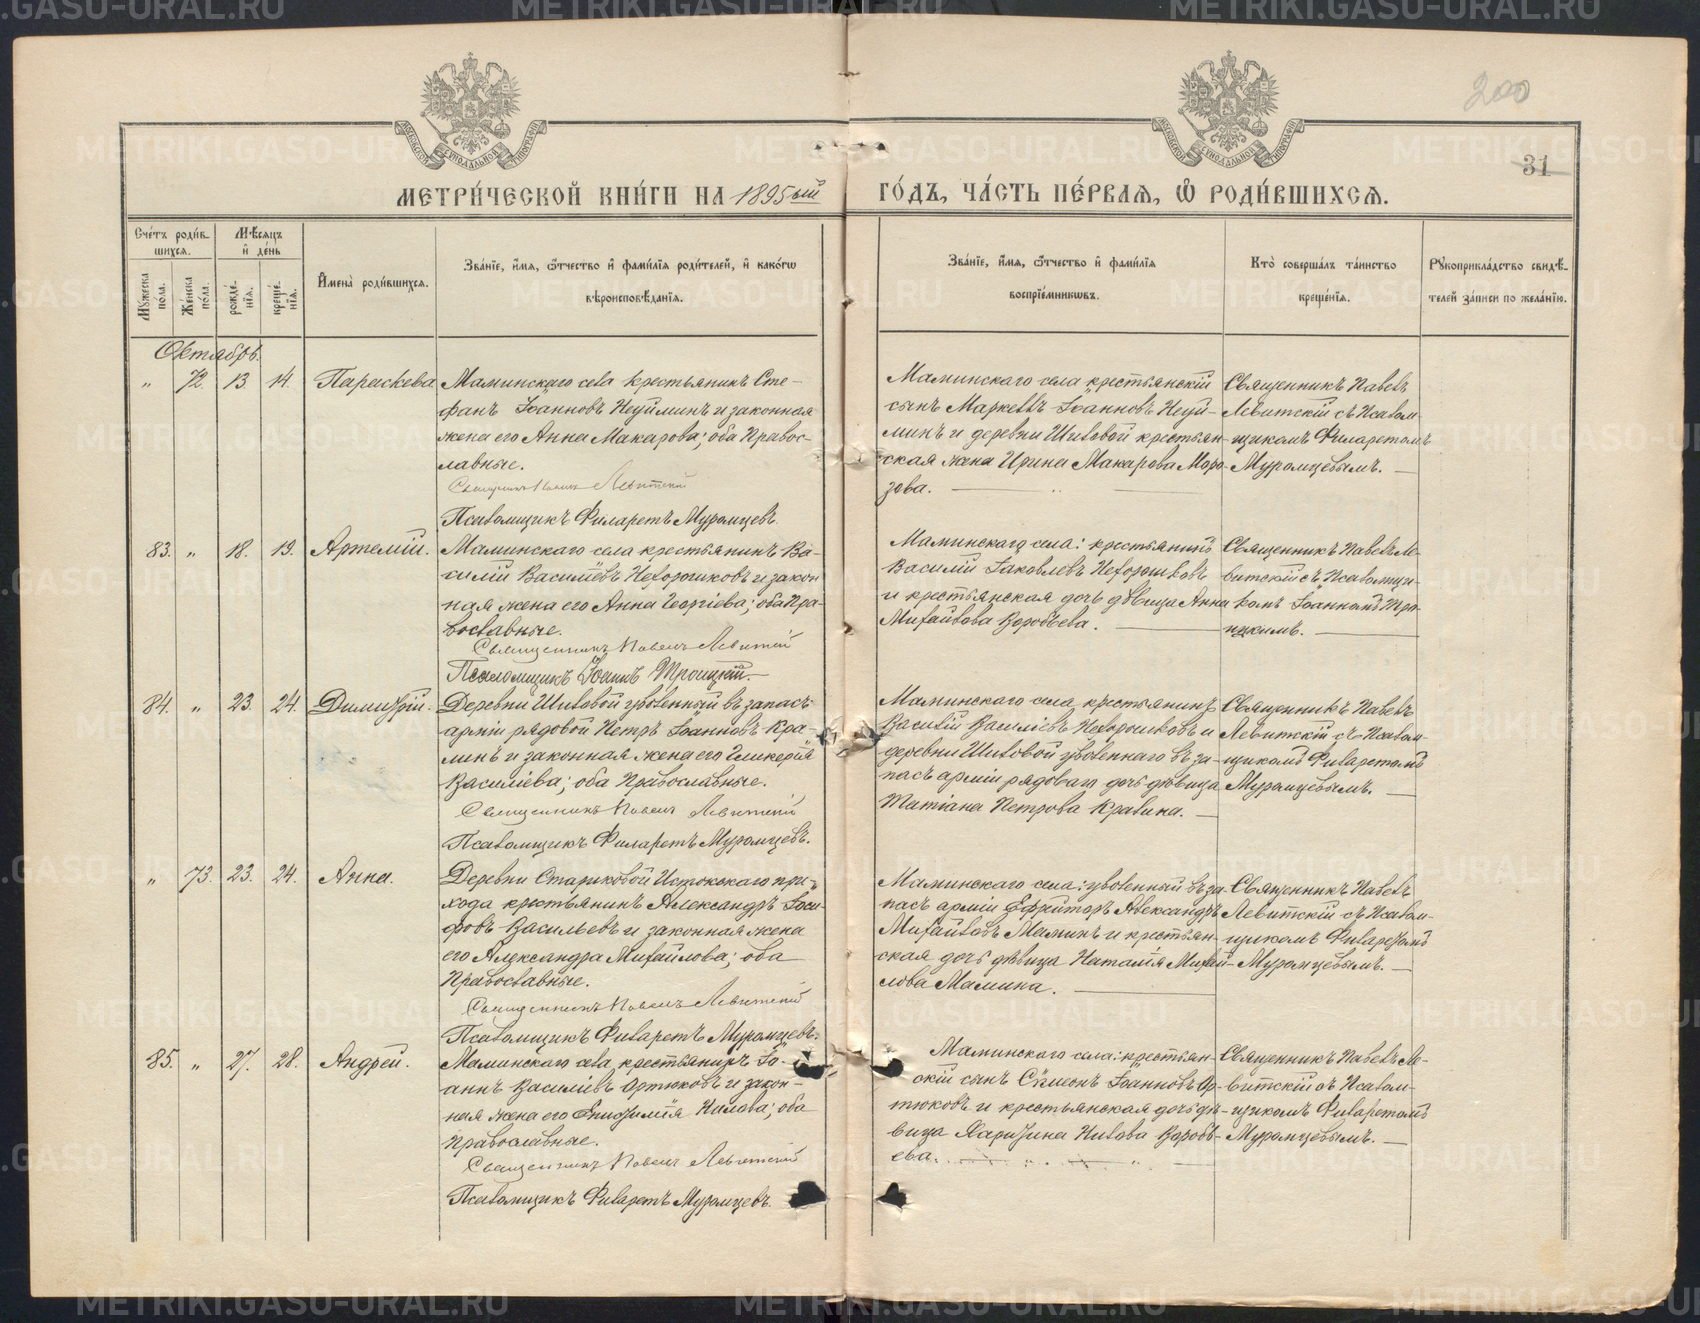 200
31
МЕТРИ́ЧЕСКОЙ КНИ́ГИ НА 1895ый ГО́ДЪ, ЧА́СТЬ ПЕ́РВАЯ, Ѽ РОДИ́ВШИХСЯ.
Сче́тъ роди́в-
шихся.
Мѣ́сяцъ
и҆ де́нь
Мꙋ́жеска по́ла.
Же́нска по́ла.
рожде́-
нїя.
креще́-
нїя.
И҆мена̀ роди́вшихся.
Зва́нїе, и҆́мя, ѻ҆́тчество и҆ фами́лїя роди́телей, и҆ како́гѡ
вѣроисповѣ́данїя.
Зва́нїе, и҆́мя, ѻ҆́тчество и҆ фами́лїя
воспрїе́мникѡвъ.
Кто̀ соверша́лъ та́инство
креще́нїя.
Рꙋкоприкла́дство свидѣ́-
телей за́писи по жела́нїю.
Октябрь.
„ 72 13 14. Параскева
Маминскаго села крестьянинъ Сте-
фанъ Іоанновъ Неуйминъ и законная
жена его Анна Макарова; оба Правос-
лавные.
Священникъ Павелъ Левитскій
Псаломщикъ Филаретъ Муромцевъ
Маминскаго села крестьянскій
сынъ Маркеллъ Іоанновъ Неуй-
минъ и деревни Шиловой крестьян-
ская жена Ирина Макарова Моро-
зова.
Священникъ Павелъ
Левитскій съ Псалом-
щикомъ Филаретомъ
Муромцевымъ.
83. „ 18. 19. Артемій.
Маминскаго села крестьянинъ Ва-
силій Василіевъ Нехорошковъ и закон
ная жена его Анна Георгіева; оба Пра-
вославные.
Священникъ Павелъ Левитскій
Псаломщикъ Іоаннъ Троицкій.
Маминскаго села: крестьянинъ
Василій Іаковлевъ Нехорошковъ
и крестьянская дочь дѣвица Анна
Михайлова Воробьева.
Священникъ Павелъ Ле-
витскій съ Псаломщи-
комъ Іоанномъ Тро-
ицкимъ.
84. „ 23. 24. Димитрій.
Деревни Шиловой уволенный въ запасъ
арміи рядовой Петръ Іоанновъ Кра-
линъ и законная жена его Гликерія
Василіева; оба Православные.
Священникъ Павелъ Левитскій
Псаломщикъ Филаретъ Муромцевъ.
Маминскаго села крестьянинъ
Василій Василіевъ Нехорошковъ и
деревни Шиловой уволеннаго въ за-
пасъ арміи рядоваго дочь дѣвица
Татіана Петрова Кралина.
Священникъ Павелъ
Левитскій съ Псалом-
щикомъ Филаретомъ
Муромцевымъ.
„ 73. 23. 24. Анна.
Деревни Стариковой Истокскаго при-
хода крестьянинъ Александръ Іоси-
фовъ Васильевъ и законная жена
его Александра Михайлова; оба
Православные.
Священникъ Павелъ Левитскій
Псаломщикъ Филаретъ Муромцевъ.
Маминскаго села: уволенный въ за-
пасъ арміи Ефрейторъ Александръ
Михайловъ Маминъ и крестьян-
ская дочь дѣвица Наталія Михай-
лова Мамина.
Священникъ Павелъ
Левитскій съ Псалом-
щикомъ Филаретомъ
Муромцевымъ.
85. „ 27. 28. Андрей.
Маминскаго села, крестьянинъ Іо-
аннъ Василіевъ Ортюковъ и закон-
ная жена его Нилова; оба
Православные.
Священникъ Павелъ Левитскій
Псаломщикъ Филаретъ Муромцевъ.
Маминскаго села: крестьян-
скій сынъ Сѵмеонъ Іоанновъ Ор-
тюковъ и крестьянская дочь дѣ-
вица Харитина Нилова Воробь-
ева.
Священникъ Павелъ Ле-
витскій съ Псалом-
щикомъ Филаретомъ
Муромцевымъ.
METRIKI.GASO-URAL.RU